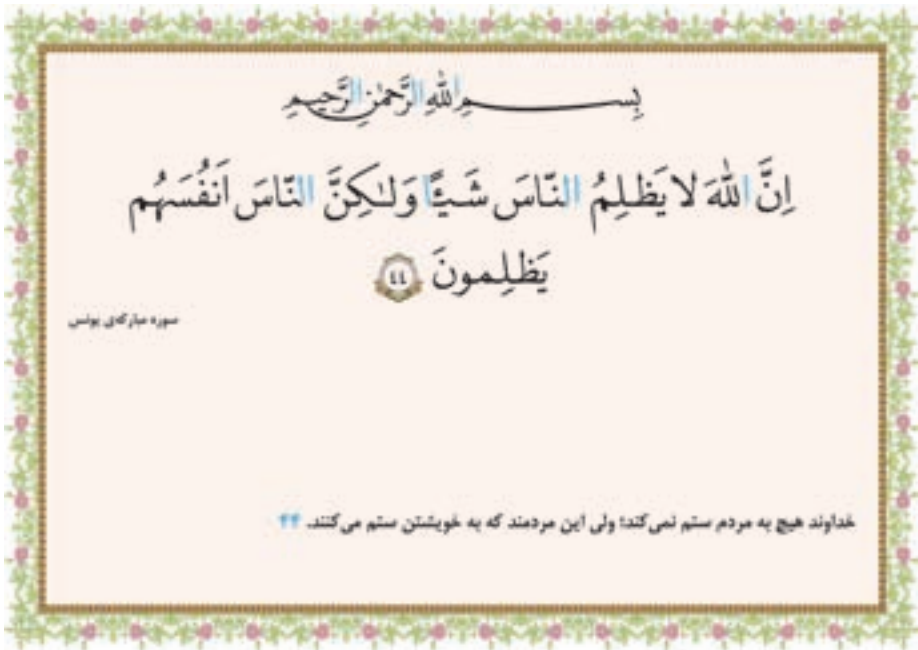 بِسمِ اللّٰهِ الرَّحمٰنِ الرَّحيمِ
اِنَّ اللّٰهَ لا يَظلِمُ النّاسَ شَيـًٔا وَلـٰكِنَّ النّاسَ اَنفُسَهُم
يَظلِمونَ ﴿٤٤﴾
سوره مبارکه‌ی یونس
خداوند هیچ به مردم ستم نمی‌کند؛ ولی این مردمند که به خویشتن ستم می‌کنند. ۴۴